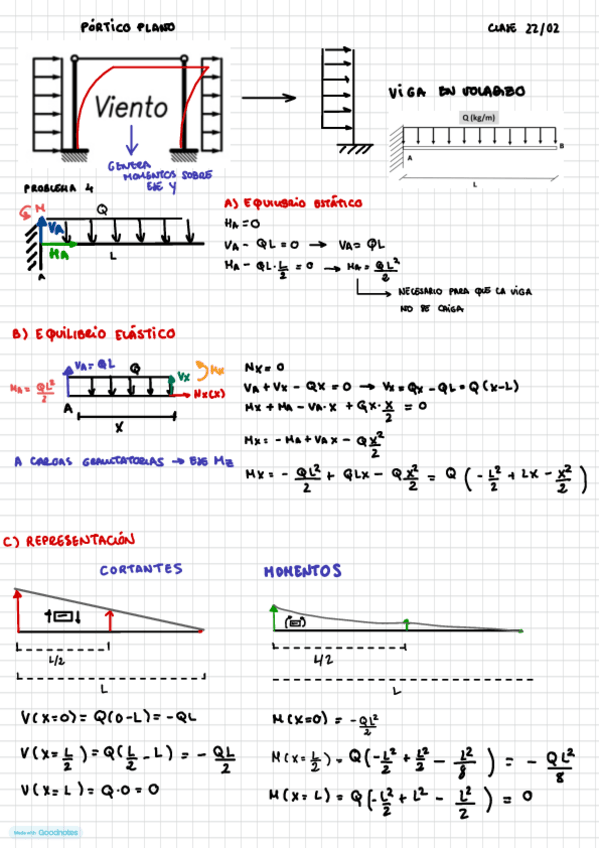 PÓRTICO PLANO
CLASE 22/02
Viento
GENERA
MOMENTOS SOBRE
EJE Y
VIGA EN VOLADIZO
Q (kg/m)
A
B
L
PROBLEMA 4
M
Q
VA
HA
L
A
A) EQUILIBRIO ESTÁTICO
HA = 0
VA - QL = 0 → VA = QL
MA - QL · L/2 = 0 → MA = QL²/2
NECESARIO PARA QUE LA VIGA
NO SE CAIGA
B) EQUILIBRIO ELÁSTICO
VA = QL
Q
Vx
Mx
MA = QL²/2
Nx(x)
A
x
A CARGAS GRAVITATORIAS → EJE Mz
Nx = 0
VA + Vx - Qx = 0 → Vx = Qx - QL = Q(x-L)
Mx + MA - VA·x + Qx·x/2 = 0
Mx = - MA + VAx - Qx²/2
Mx = - QL²/2 + QLx - Qx²/2 = Q(-L²/2 + Lx - x²/2)
C) REPRESENTACIÓN
CORTANTES
MOMENTOS
L/2
L
L/2
L
V(x=0) = Q(0-L) = -QL
V(x=L/2) = Q(L/2 - L) = - QL/2
V(x=L) = Q·0 = 0
M(x=0) = -QL²/2
M(x=L/2) = Q(-L²/2 + L²/2 - L²/8) = - QL²/8
M(x=L) = Q(-L²/2 + L² - L²/2) = 0
Made with Goodnotes